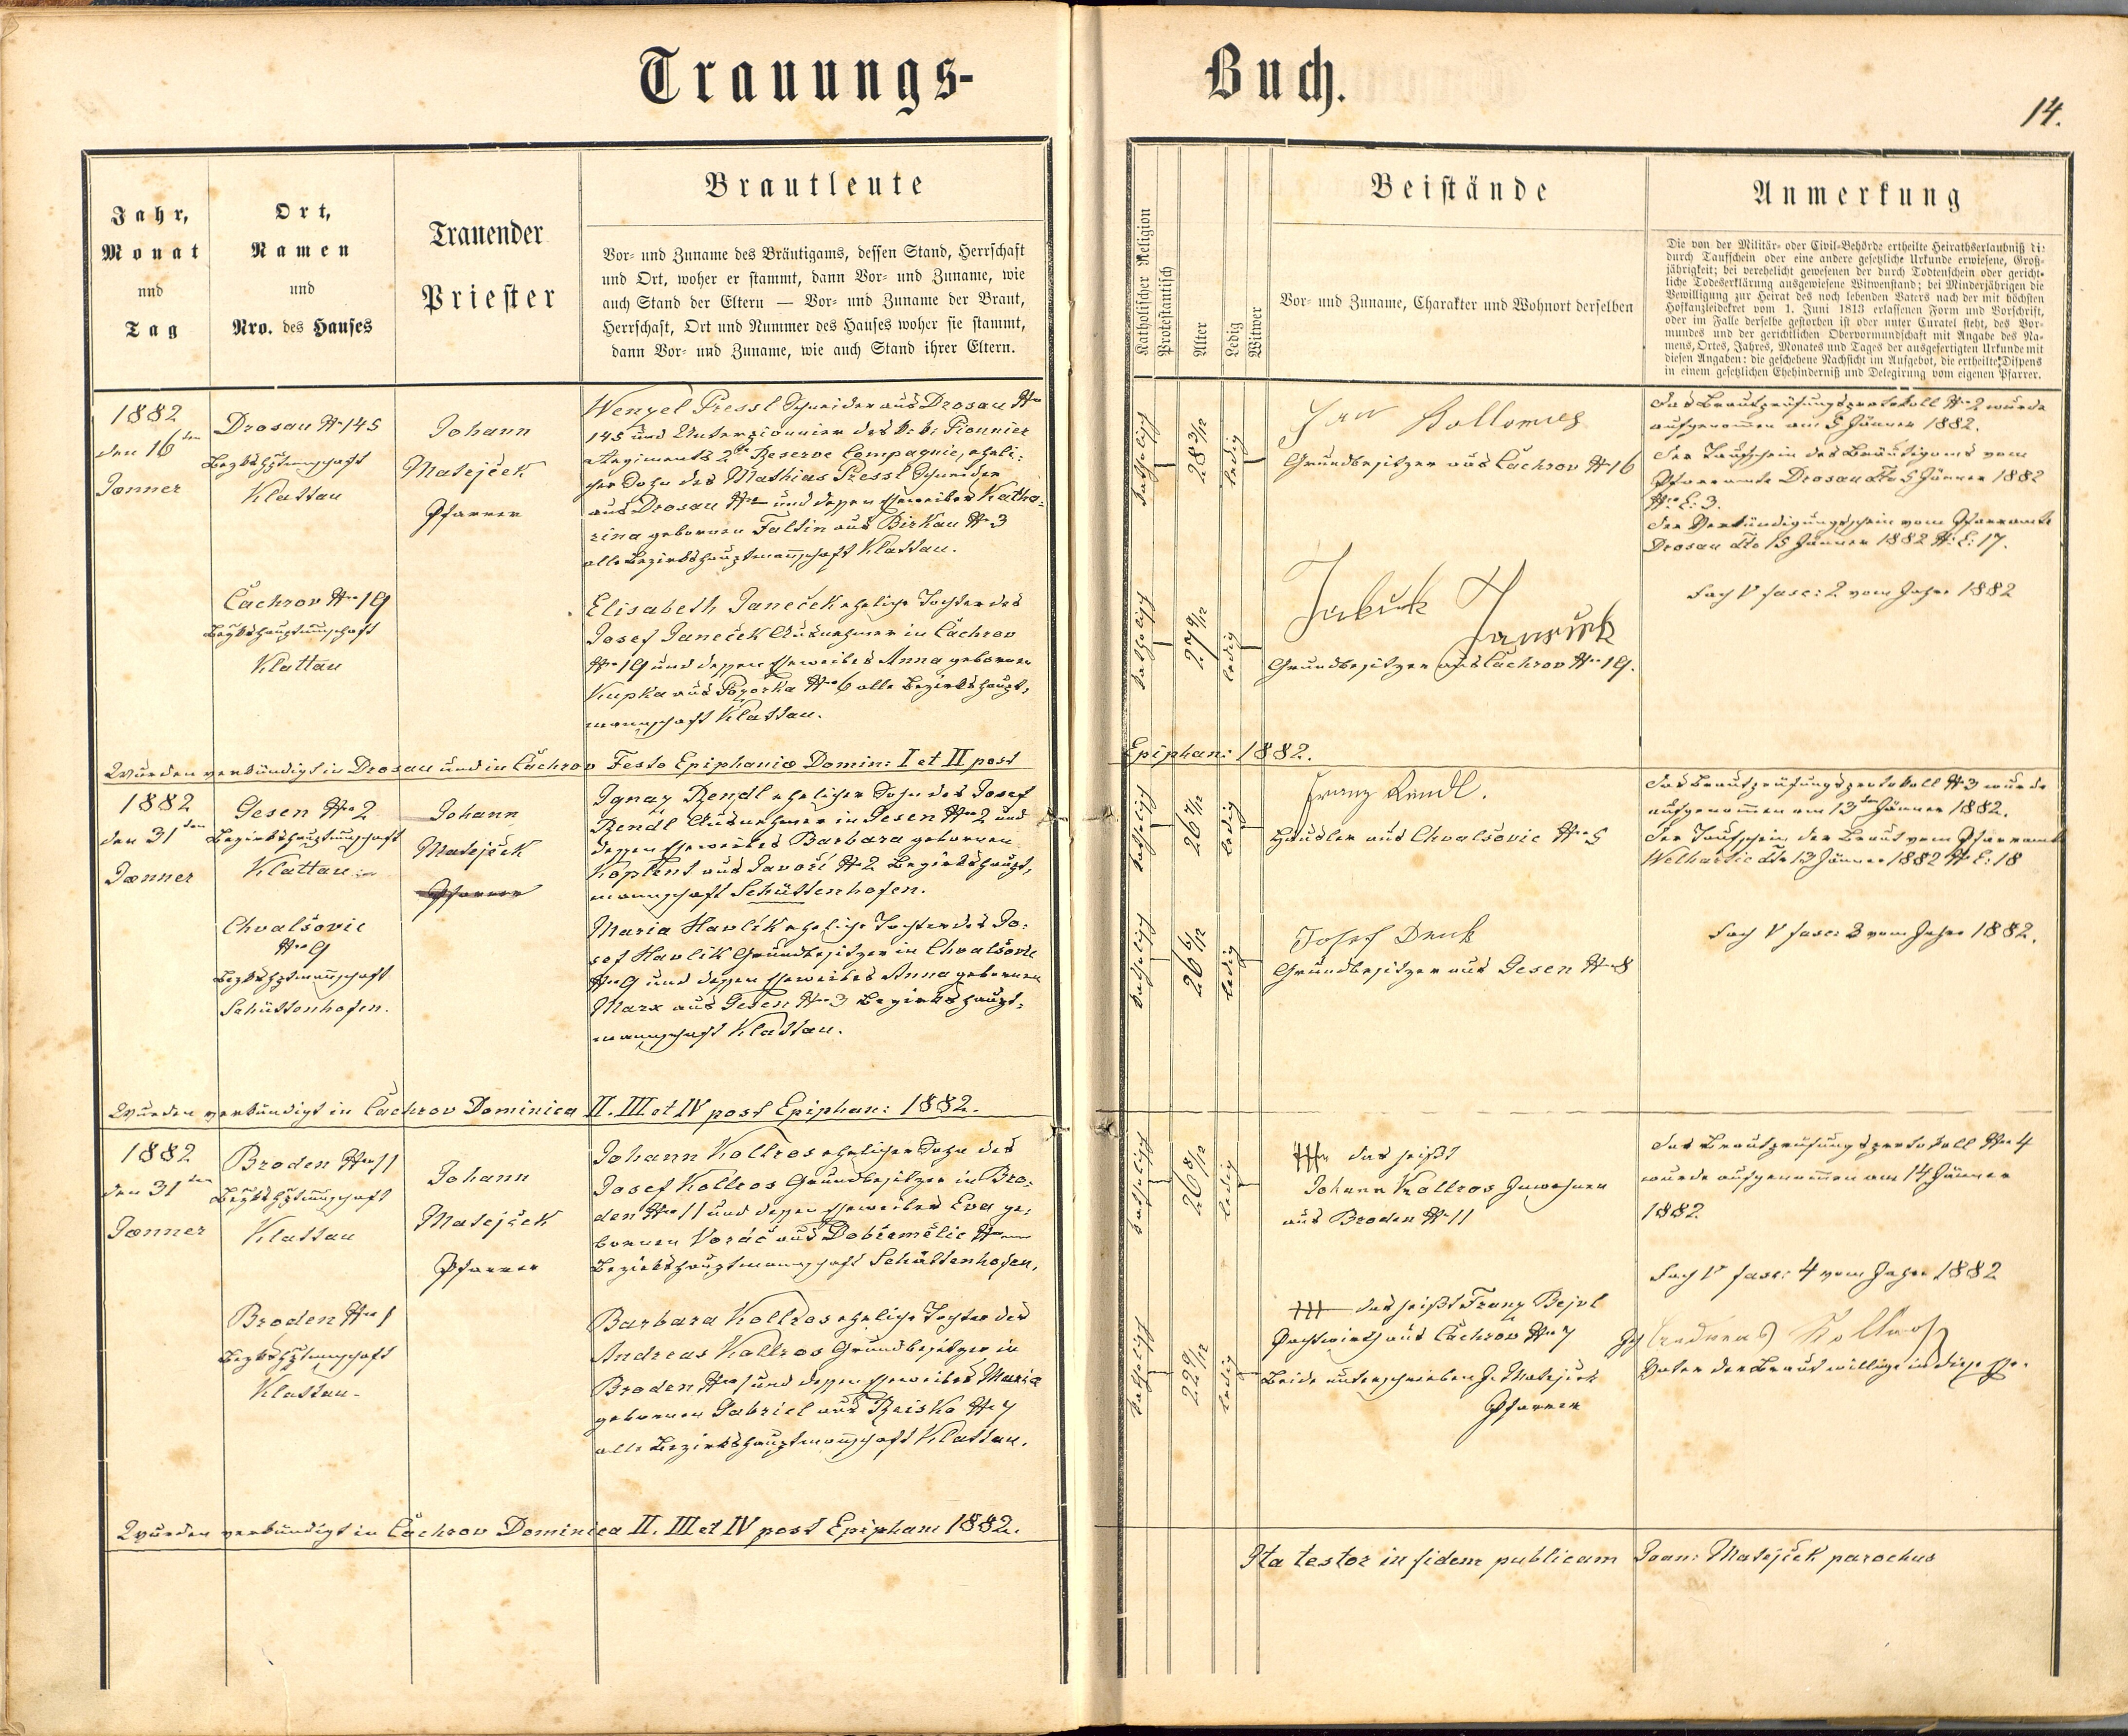 Trauungs-
Buch.
14.
Jahr,
Monat
und
Tag
Ort,
Namen
und
Nro. des Hauses
Trauender
Priester
Brautleute
Vor- und Zuname des Bräutigams, dessen Stand, Herrschaft
und Ort, woher er stammt, dann Vor- und Zuname, wie
auch Stand der Eltern — Vor- und Zuname der Braut,
Herrschaft, Ort und Nummer des Hauses woher sie stammt,
dann Vor- und Zuname, wie auch Stand ihrer Eltern.
Katholischer Religion
Protestantisch
Alter
Ledig
Witwer
Beistände
Vor- und Zuname, Charakter und Wohnort derselben
Anmerkung
Die von der Militär- oder Civil-Behörde ertheilte Heirathserlaubniß di:
durch Taufschein oder eine andere gesetzliche Urkunde erwiesene, Groß-
jährigkeit; bei verehelicht gewesenen der durch Todtenschein oder gericht-
liche Todeserklärung ausgewiesene Witwenstand; bei Minderjährigen die
Bewilligung zur Heirat des noch lebenden Vaters nach der mit höchsten
Hofkanzleidekret vom 1. Juni 1813 erlassenen Form und Vorschrift,
oder im Falle derselbe gestorben ist oder unter Curatel steht, des Vor-
mundes und der gerichtlichen Obervormundschaft mit Angabe des Na-
mens, Ortes, Jahres, Monates und Tages der ausgefertigten Urkunde mit
diesen Angaben: die geschehene Nachsicht im Aufgebot, die ertheilte Dispens
in einem gesetzlichen Ehehinderniß und Delegirung vom eigenen Pfarrer.
1882
den 16ten
Jänner
Drosau N 145
Bezkshptmschaft
Klattau
Johann
Matejček
Pfarrer
Wenzel Pressl Schneider aus Drosau No
145 und Unterpionnier des k. k. Pionnier
Regiments 2te Reserve Compagnie, eheli-
cher Sohn des Mathias Pressl Schneider
aus Drosau No und dessen Eheweibes Katha-
rina geborenen Faltin aus Birkau No 3
alle Bezirkshauptmannschaft Klattau.
katholisch
28 3/12
ledig
Jan
Grundbesitzer aus Čachrov No 16
Das Brautprüfungsprotokoll No 2 wurde
aufgenommen am 5 Jänner 1882.
Der Taufschein des Bräutigams vom
Pfarramte Drosau dto 5 Jänner 1882
N. E: 3.
Der Verkündigungsschein vom Pfarramte
Drosau dto 15 Jänner 1882 N: E: 17.
Čachrov No 19
Bezkshauptmschaft
Klattau
Elisabeth Janeček eheliche Tochter des
Josef Janeček Ausnehmer in Čachrov
No 19 und dessen Eheweibes Anna geborenen
Kupka aus Pozorka No 6 alle Bezirkshaupt-
mannschaft Klattau.
katholisch
27 9/12
ledig
Grundbesitzer aus Čachrov No 19.
Fach V fasc: 2 vom Jahre 1882
Wurden verkündigt in Drosau und in Čachrov Festo Epiphaniæ Domin: I et II post
Epiphan: 1882.
1882
den 31ten
Jänner
Gesen No 2
Bezirkshauptmschaft
Klattau
Johann
Matejček
Pfarrer
Ignaz Rendl ehelicher Sohn des Josef
Rendl Ausnehmer in Gesen No 2 und
dessen Eheweibes Barbara geborenen
Koplent aus Javoří No 2 Bezirkshaupt-
mannschaft Schüttenhofen.
katholisch
26 7/12
ledig
Franz Rendl.
Häusler aus Chvalšovic No 5
Das Brautprüfungsprotokoll No 3 wurde
aufgenommen am 13ten Jänner 1882.
Der Taufschein der Braut vom Pfarramte
Welhartic dto 13 Jänner 1882 N. E: 18
Chvalšovic
No 9
Bezkshptmannschaft
Schüttenhofen.
Maria Havlík eheliche Tochter des Jo-
sef Havlík Grundbesitzer in Chvalšovic
No 9 und dessen Eheweibes Anna geborenen
Marx aus Gesen No 3 Bezirkshaupt-
mannschaft Klattau.
katholisch
26 6/12
ledig
Josef Denk
Grundbesitzer aus Gesen No 8
Fach V fasc: 3 vom Jahre 1882.
Wurden verkündigt in Čachrov Dominica II. III et IV post Epiphan: 1882.
1882
den 31ten
Jänner
Broden No 11
Bezkshptmschaft
Klattau
Johann
Matejček
Pfarrer
Johann Kollros ehelicher Sohn des
Josef Kollros Grundbesitzer in Bro-
den No 11 und dessen Eheweibes Eva ge-
borenen Voráč aus Dobřemělic No
Bezirkshauptmannschaft Schüttenhofen.
katholisch
26 8/12
ledig
+++ das heißt
Johann Kollros Inwohner
aus Broden No 11
Das Brautprüfungsprotokoll No 4
wurde aufgenommen am 14 Jänner
1882
Fach V fasc: 4 vom Jahre 1882
Broden No 1
Bezkshptmschaft
Klattau.
Barbara Kollros eheliche Tochter des
Andreas Kollros Grundbesitzer in
Broden No 1 und dessen Eheweibes Maria
geborenen Gabriel aus Raisko No 7
alle Bezirkshauptmannschaft Klattau.
katholisch
22 9/12
ledig
+++ das heißt Franz Bejvl
Pachtwirth aus Čachrov No 7
Beide unterschrieben J. Matejček
Pfarrer
Ich Andreas Kollros
Vater der Braut willige in diese Ehe.
Wurden verkündigt in Čachrov Dominica II. III et IV post Epiphan: 1882.
Ita testor in fidem publicam Joan: Matejček parochus